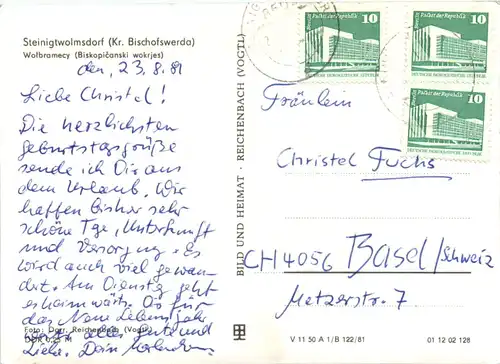 Steinigtwolmsdorf (Kr. Bischofswerda)
Wołbramecy (Biskopičanski wokrjes)
den, 23.8.81
Liebe Christel!
Die herzlichsten
geburtstagsgrüße
sende ich Dir aus
dem Urlaub. Wir
hatten bisher sehr
schöne Tge, Unterkunft
und Versorgung. Es
wird auch viel gewan-
dert. Am Dienstag geht
es heimwärts. So für
das Neue Lebensjahr
alles Gute und
Liebe. Dein
Foto: Darr, Reichenbach (Vogtl.)
BILD UND HEIMAT · REICHENBACH (VOGTL)
Palast der Republik
10
DEUTSCHE DEMOKRATISCHE REPUBLIK
Palast der Republik
10
DEUTSCHE DEMOKRATISCHE REPUBLIK
Palast der Republik
10
DEUTSCHE DEMOKRATISCHE REPUBLIK
Fräulein
Christel Fuchs
CH 4056 Basel/Schweiz
Metzerstr. 7
V 11 50 A 1/B 122/81
01 12 02 128